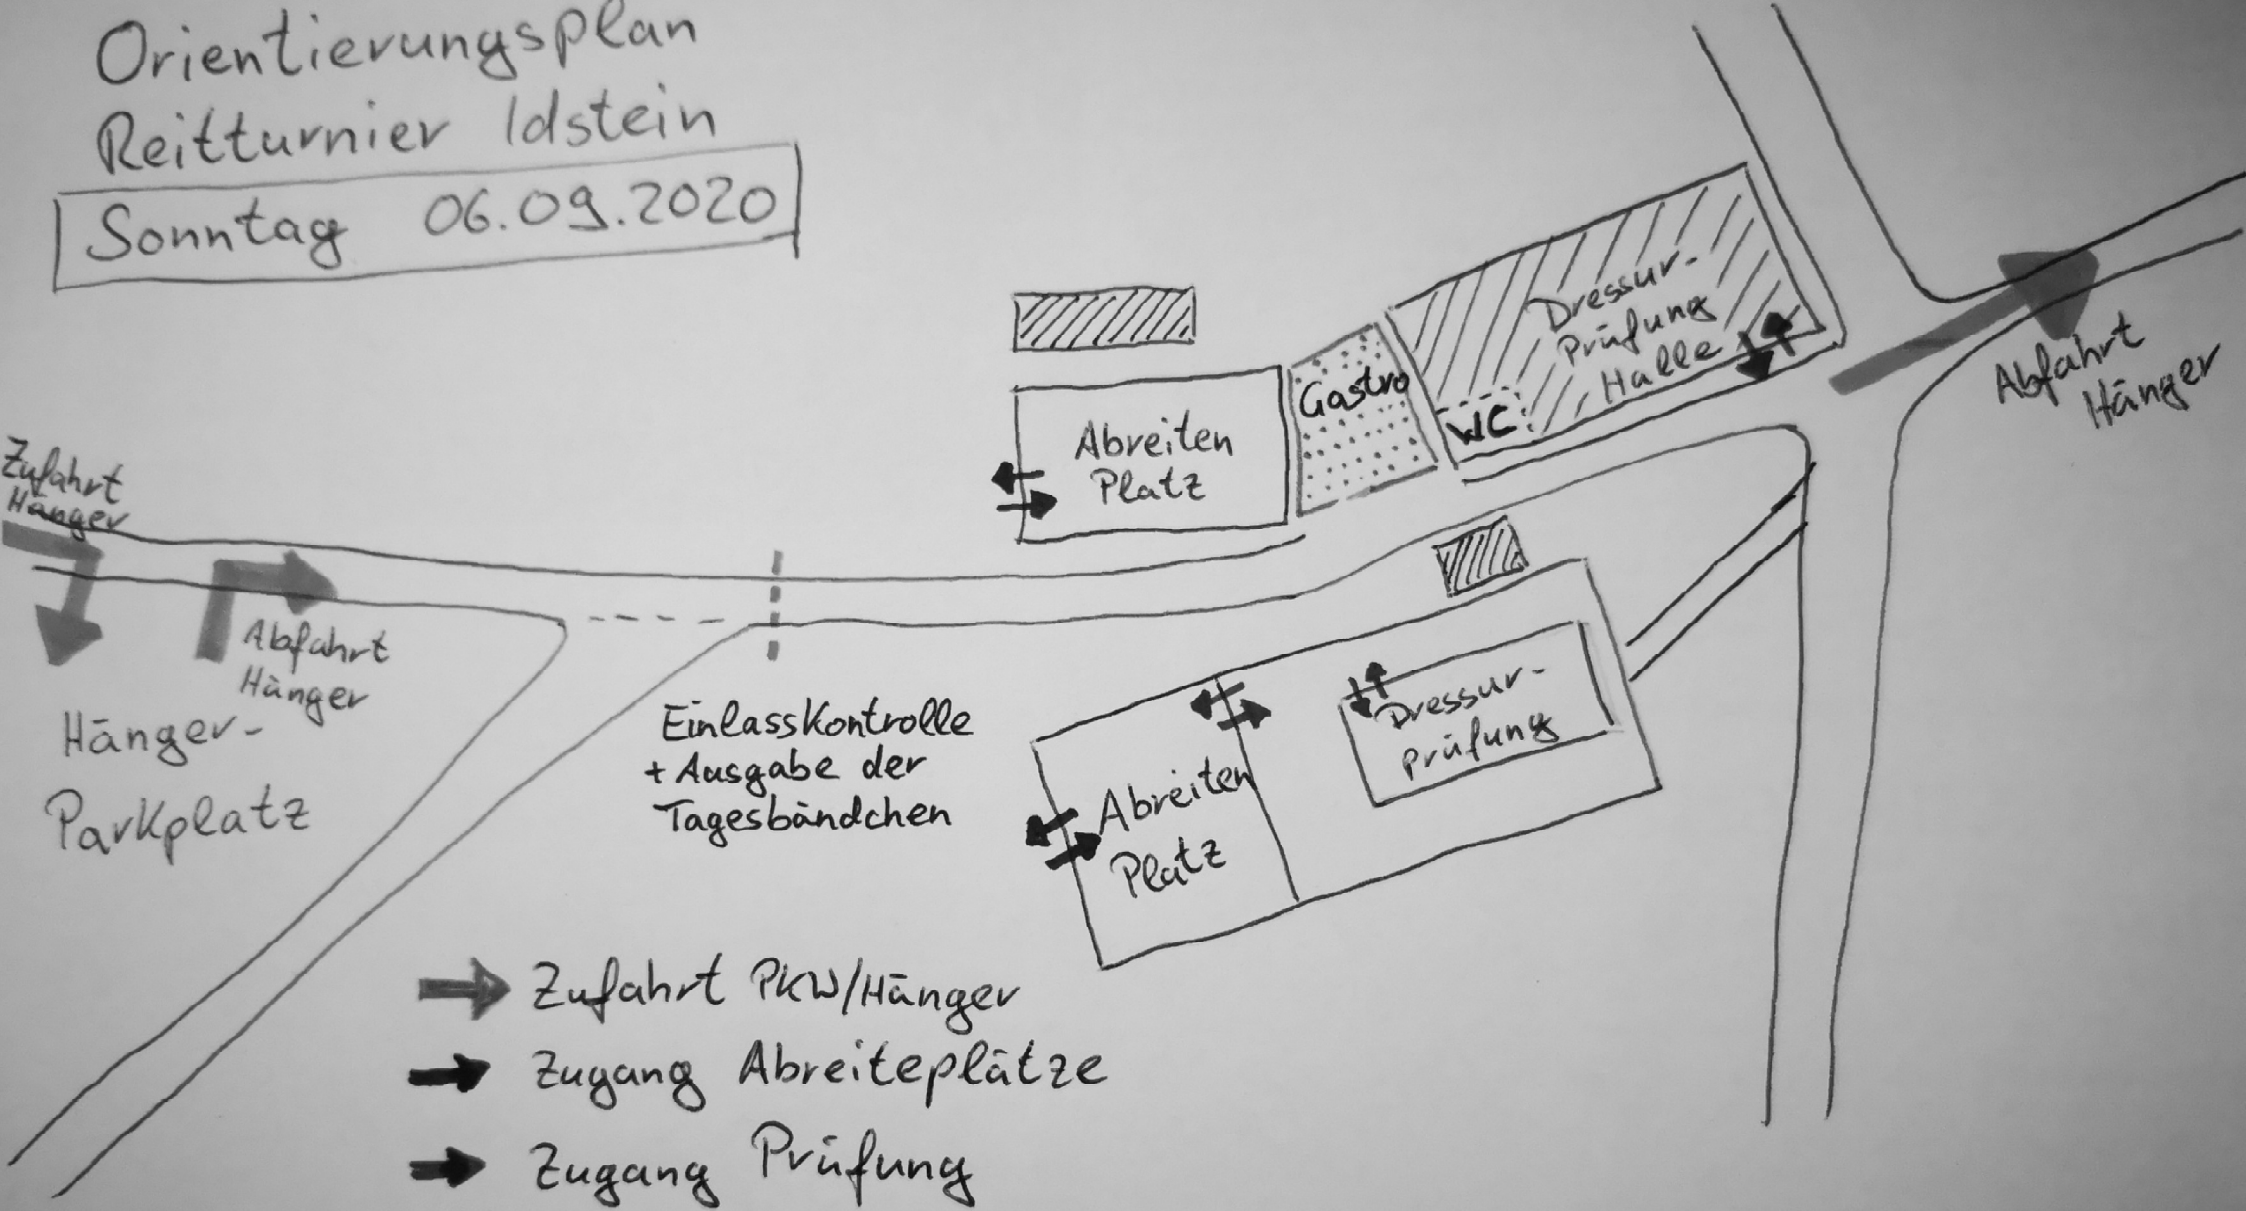 Orientierungsplan
Reitturnier Idstein
Sonntag 06.09.2020
Dressur-
Prüfung
Halle
Gastro
WC
Abreiten
Platz
Abfahrt
Hänger
Zufahrt
Hänger
Abfahrt
Hänger
Hänger-
Parkplatz
Einlasskontrolle
+ Ausgabe der
Tagesbändchen
Dressur-
prüfung
Abreiten
Platz
Zufahrt PKW/Hänger
Zugang Abreiteplätze
Zugang Prüfung